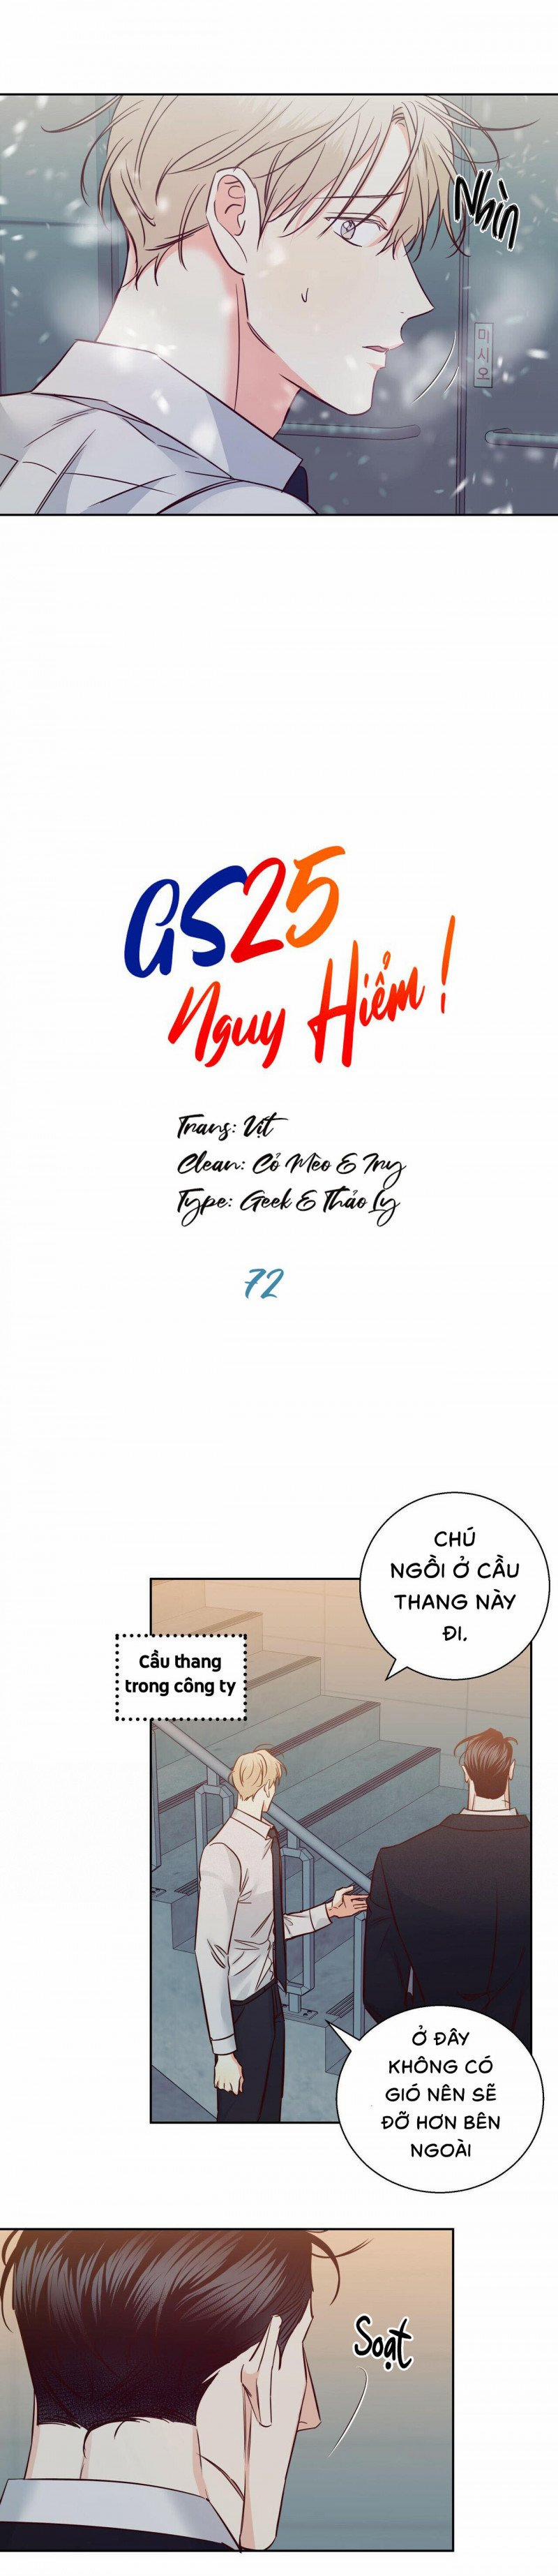 Nhìn
미시오
GS25
Nguy Hiểm!
Trans: Vịt
Clean: Cỏ Mèo & Iry
Type: Geek & Thảo Ly
72
CHÚ
NGỒI Ở CẦU
THANG NÀY
ĐI.
Cầu thang
trong công ty
Ở ĐÂY
KHÔNG CÓ
GIÓ NÊN SẼ
ĐỠ HƠN BÊN
NGOÀI
Soạt